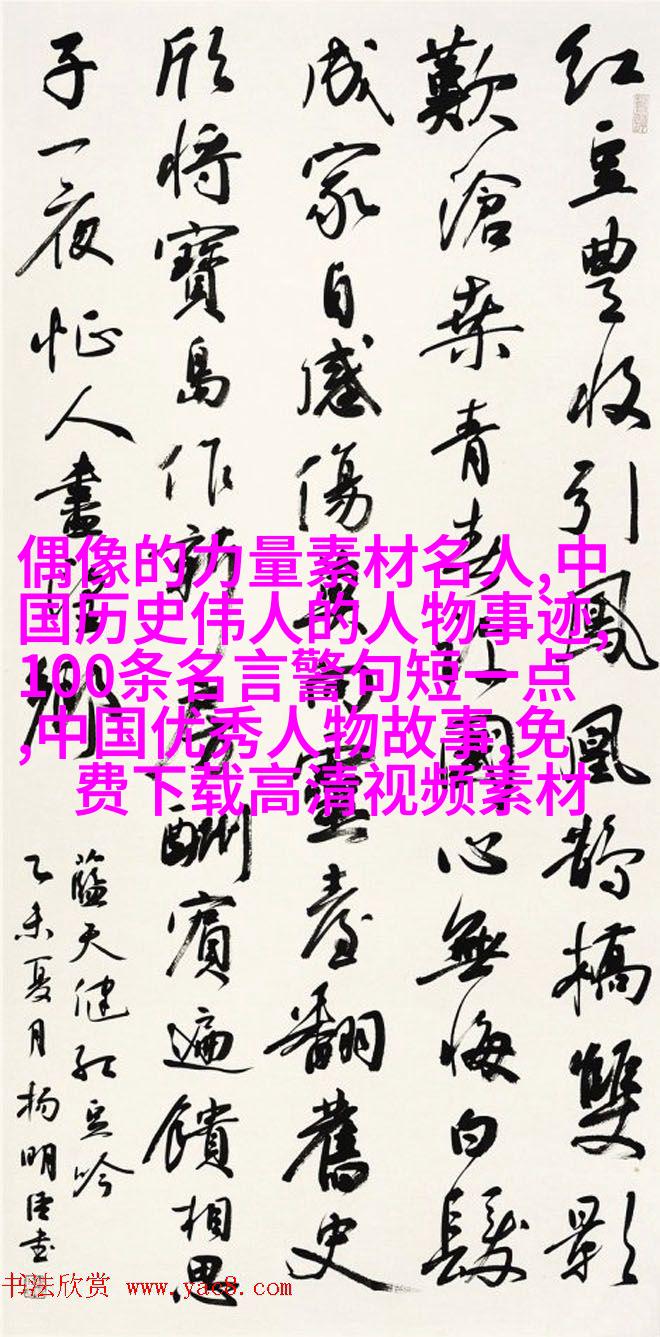 红豆豊收引鳳凰鹊橋雙影
歎滄桑青春國心無悔白髮
成家自感傷莫靈臺翻舊史
欣將寶島作新房酬賓遍饋相思
子一夜忙人鄉
藍天健红豆吟
乙未夏月杨明臣书
偶像的力量素材名人,中
国历史伟人的人物事迹,
100条名言警句短一点
,中国优秀人物故事,免
费下载高清视频素材
书法欣赏 www.yac8.com